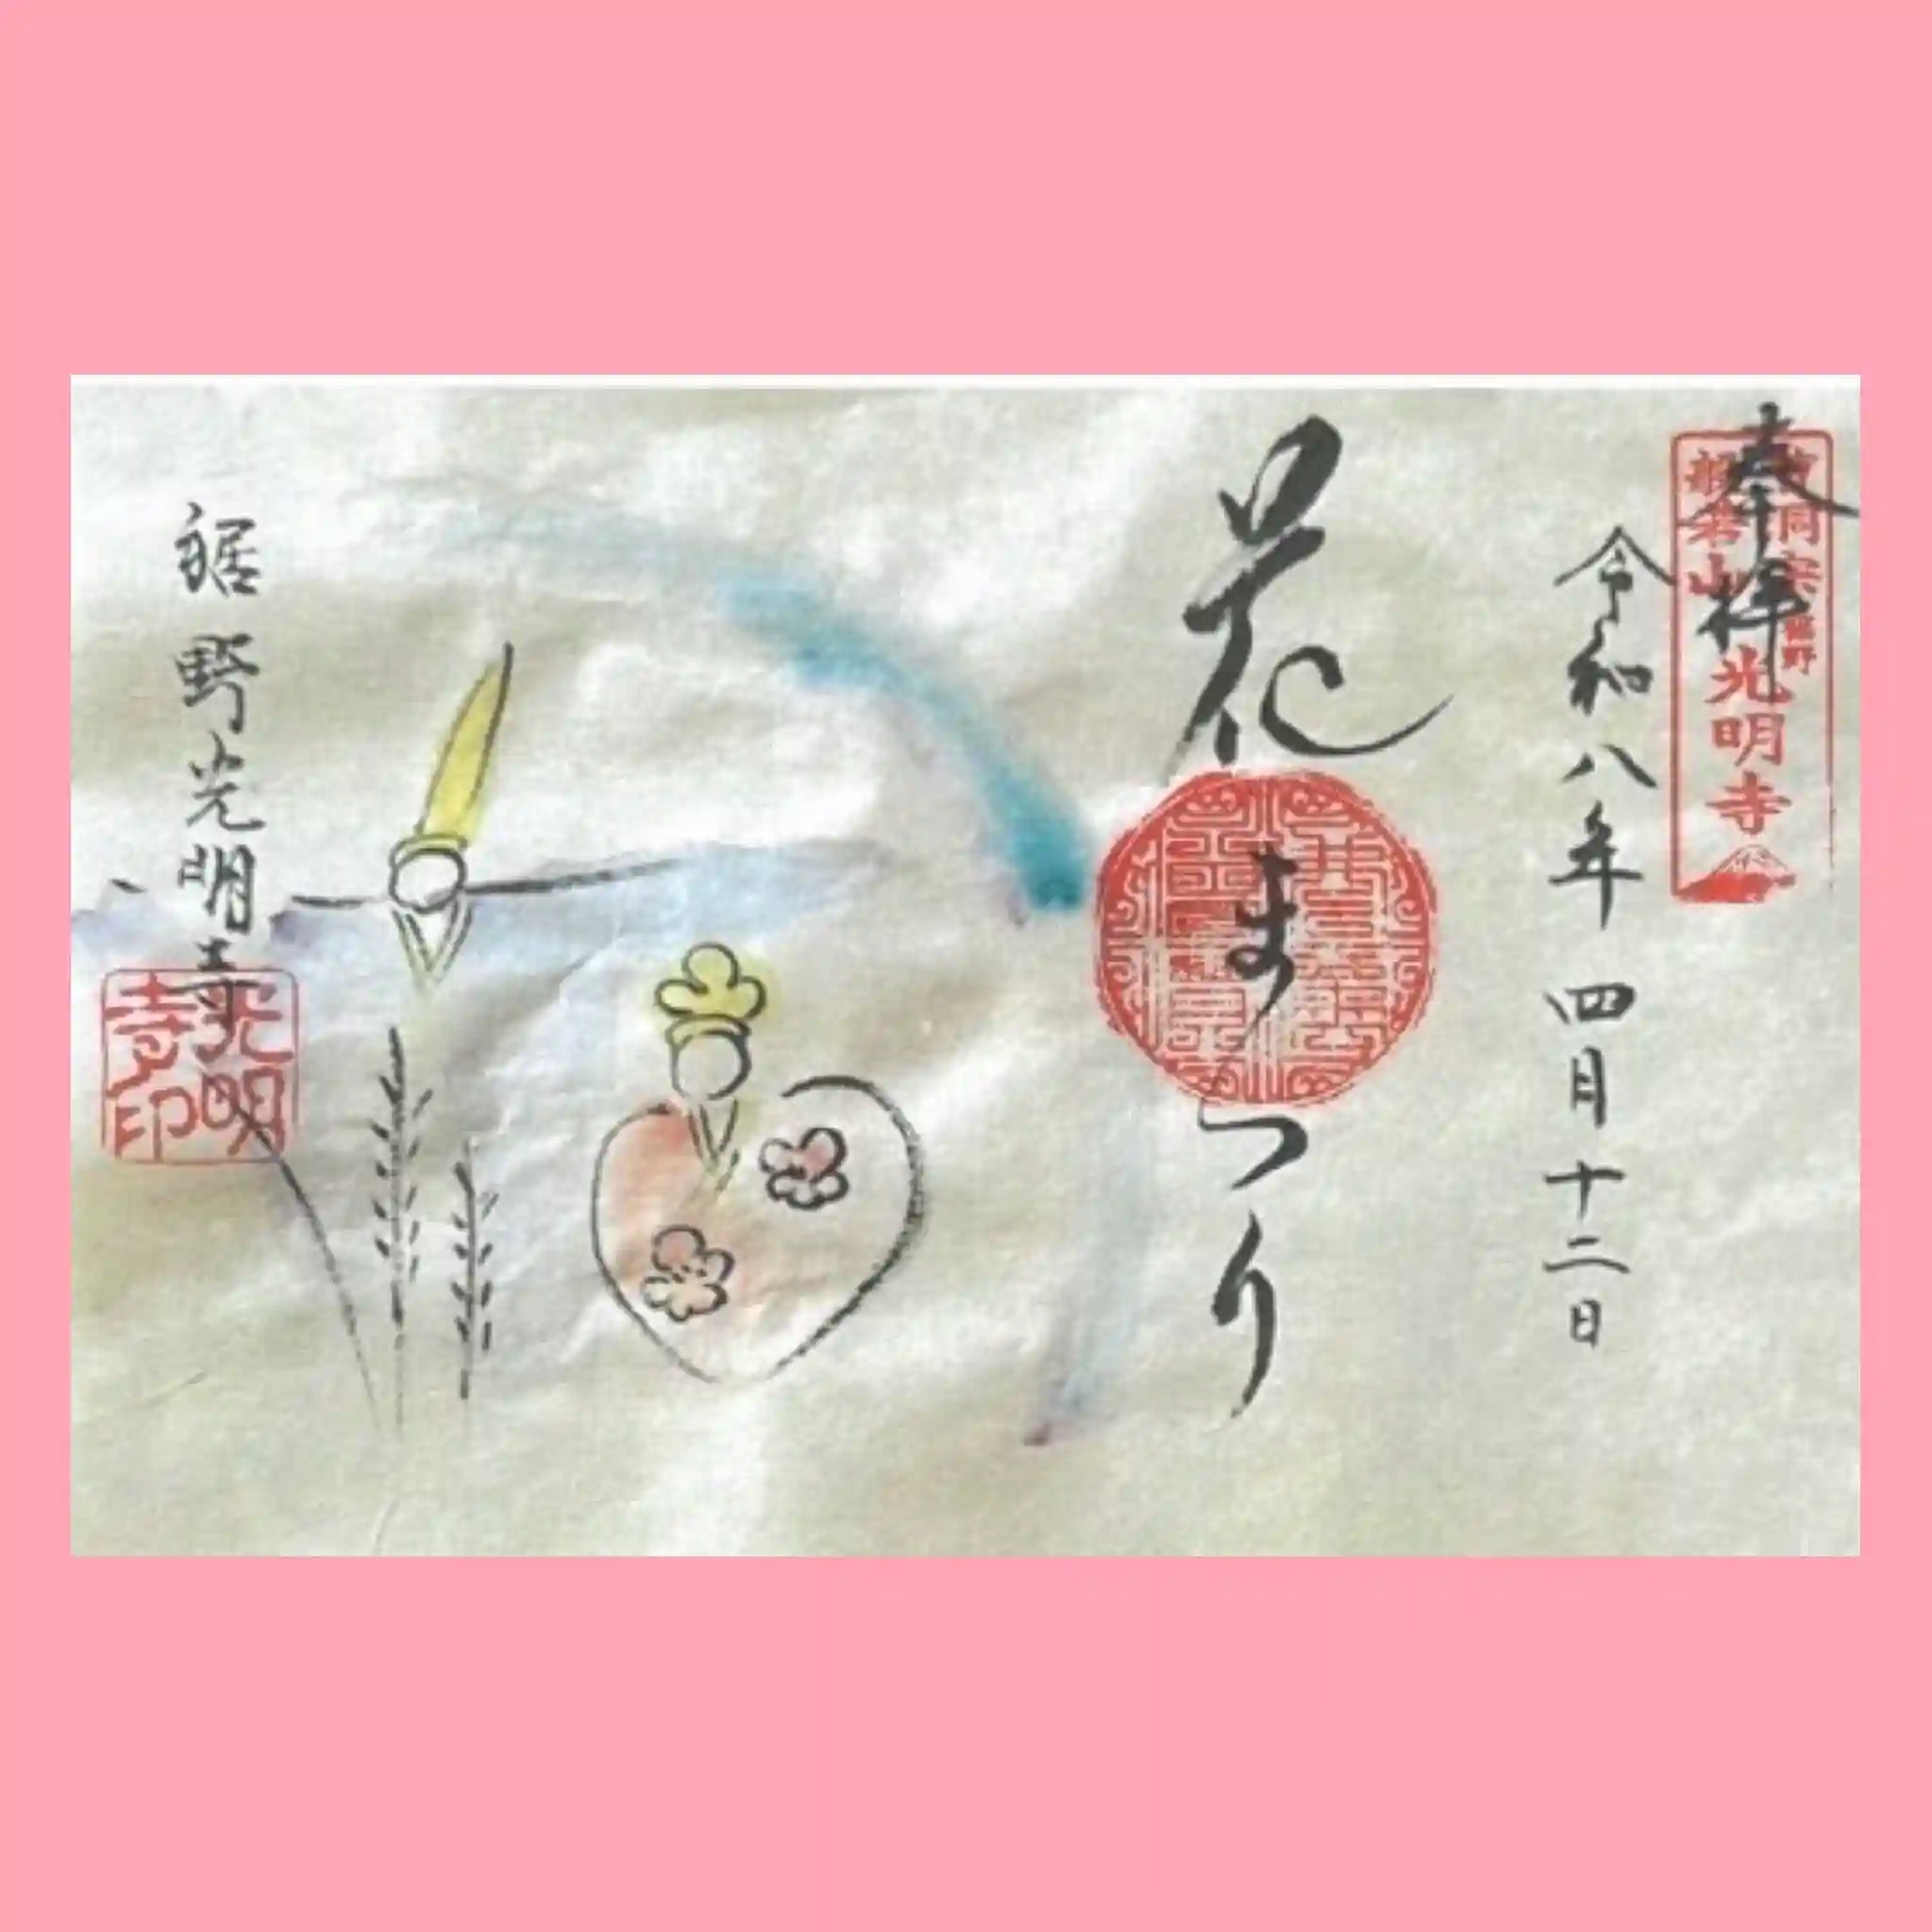 奉拝
曹洞宗 裾野
般若山
光明寺
令和八年 四月十二日
花まつり
裾野光明寺
光明寺印